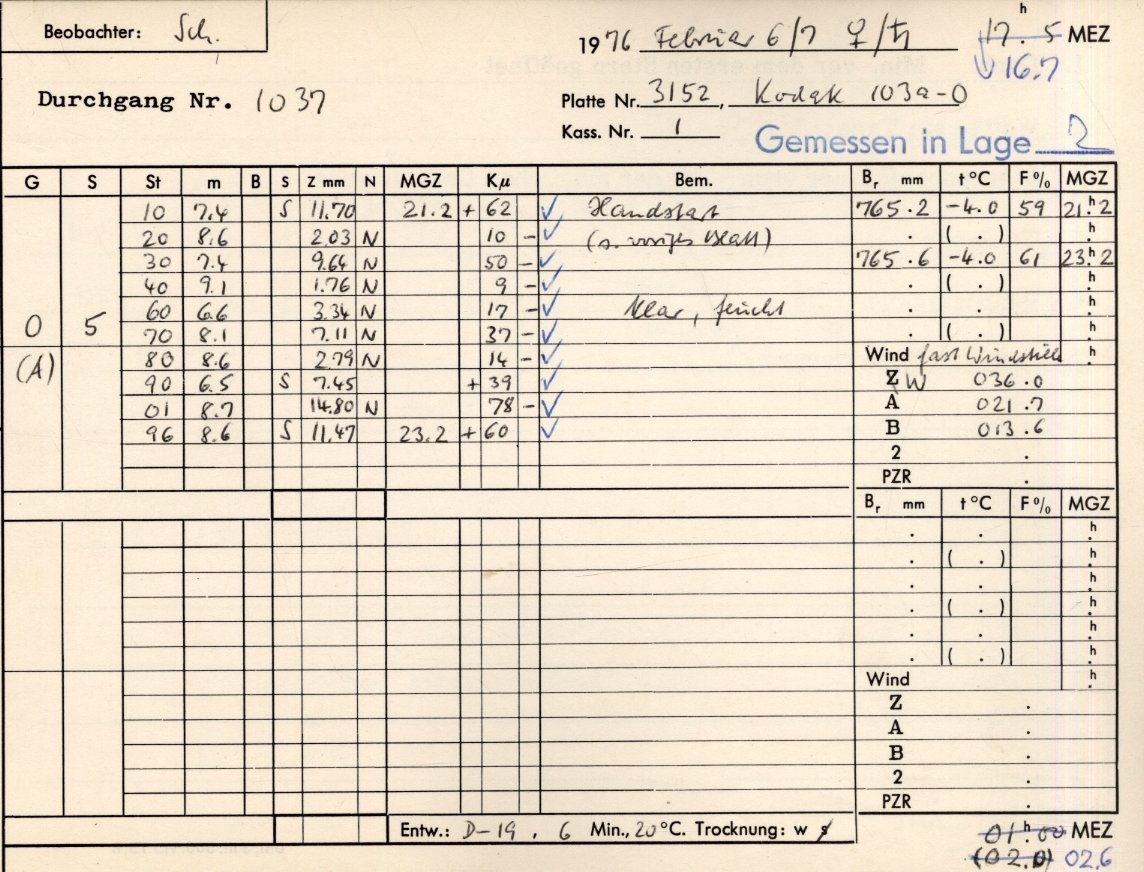 Beobachter: Sch.
1976 Februar 6/7 ♀/♄ 17.ʰ5 MEZ
16.7
Durchgang Nr. 1037
Platte Nr. 3152, Kodak 103a-O
Kass. Nr. 1
Gemessen in Lage 2
G S St m B S Z mm N MGZ Kμ Bem. Bᵣ mm t °C F % MGZ
10 7.4 S 11.70 21.2 + 62 ✓ Handstart 765.2 -4.0 59 21.ʰ2
20 8.6 2.03 N 10 - ✓ (s. voriges Blatt) . ( . ) .ʰ
30 7.4 9.64 N 50 - ✓ 765.6 -4.0 61 23.ʰ2
40 9.1 1.76 N 9 - ✓ . ( . ) .ʰ
60 6.6 3.34 N 17 - ✓ klar, feucht . . .ʰ
0 5 70 8.1 7.11 N 37 - ✓ . ( . ) .ʰ
(A) 80 8.6 2.79 N 14 - ✓ Wind fast Windstille .ʰ
90 6.5 S 7.45 + 39 ✓ Z W 036.0
01 8.7 14.80 N 78 - ✓ A 021.7
96 8.6 S 11.47 23.2 + 60 ✓ B 013.6
2 .
PZR .
Bᵣ mm t °C F % MGZ
. . .ʰ
. ( . ) .ʰ
. . .ʰ
. ( . ) .ʰ
. . .ʰ
. ( . ) .ʰ
Wind .ʰ
Z .
A .
B .
2 .
PZR .
Entw.: D-19, 6 Min., 20 °C. Trocknung: w s
01.ʰ00 MEZ
(02.0) 02.6